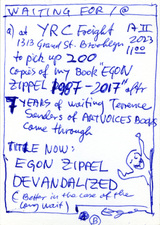 WAITING FOR / @
a) at YRC Freight 17 II
1313 Grand St. Brooklyn 2023
to pick up 200 11:00
copies of my Book "EGON
ZIPPEL 1987-2017" after
7 YEARS of waiting Terrence
Sanders of ARTVOICES BOOKS
came through
TITLE NOW:
EGON ZIPPEL
DEVANDALIZED
(Better in the case of the
long wait)